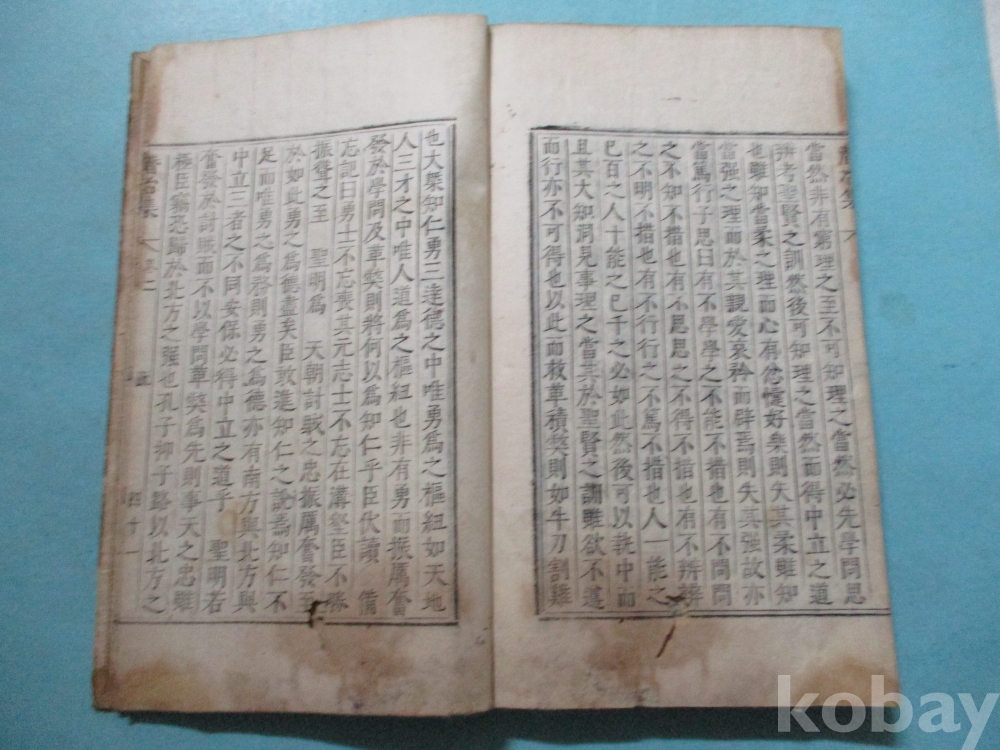 當然非有窮理之至不可知理之當然必先學問思
辨考聖賢之訓然後可知理之當然而得中立之道
也雖知當柔之理而心有忿懥好樂則失其柔雖知
當强之理而於其親愛哀矜而辟焉則失其强故亦
當篤行子思曰有不學學之不能不措也有不問問
之不知不措也有不思思之不得不措也有不辨辨
之不明不措也有不行行之不篤不措也人一能之
己百之人十能之己千之必如此然後可以執中而
且其大知洞見事理之當其於聖賢之訓雖欲不遵
而行亦不可得也以此而枚草積獘則如牛刀割雞
也大槩知仁勇三達德之中唯勇爲之樞紐如天地
人三才之中唯人道爲之樞紐也非有勇而振厲奮
發於學問及革獘則將何以爲知仁乎臣伏讀 備
忘記曰勇士不忘喪其元志士不忘在溝壑臣不勝
振聳之至 聖明爲 天朝討賊之忠振厲奮發至
於如此勇之爲德盡矣臣敢進知仁之說焉知仁不
足而唯勇之爲務則勇之爲德亦有南方與北方與
中立三者之不同安保必得中立之道乎 聖明若
奮發於討賊而不以學問革獘爲先則事天之忠雖
極臣竊恐歸於北方之强也孔子抑子路以北方之
卷二
四十一
kobay